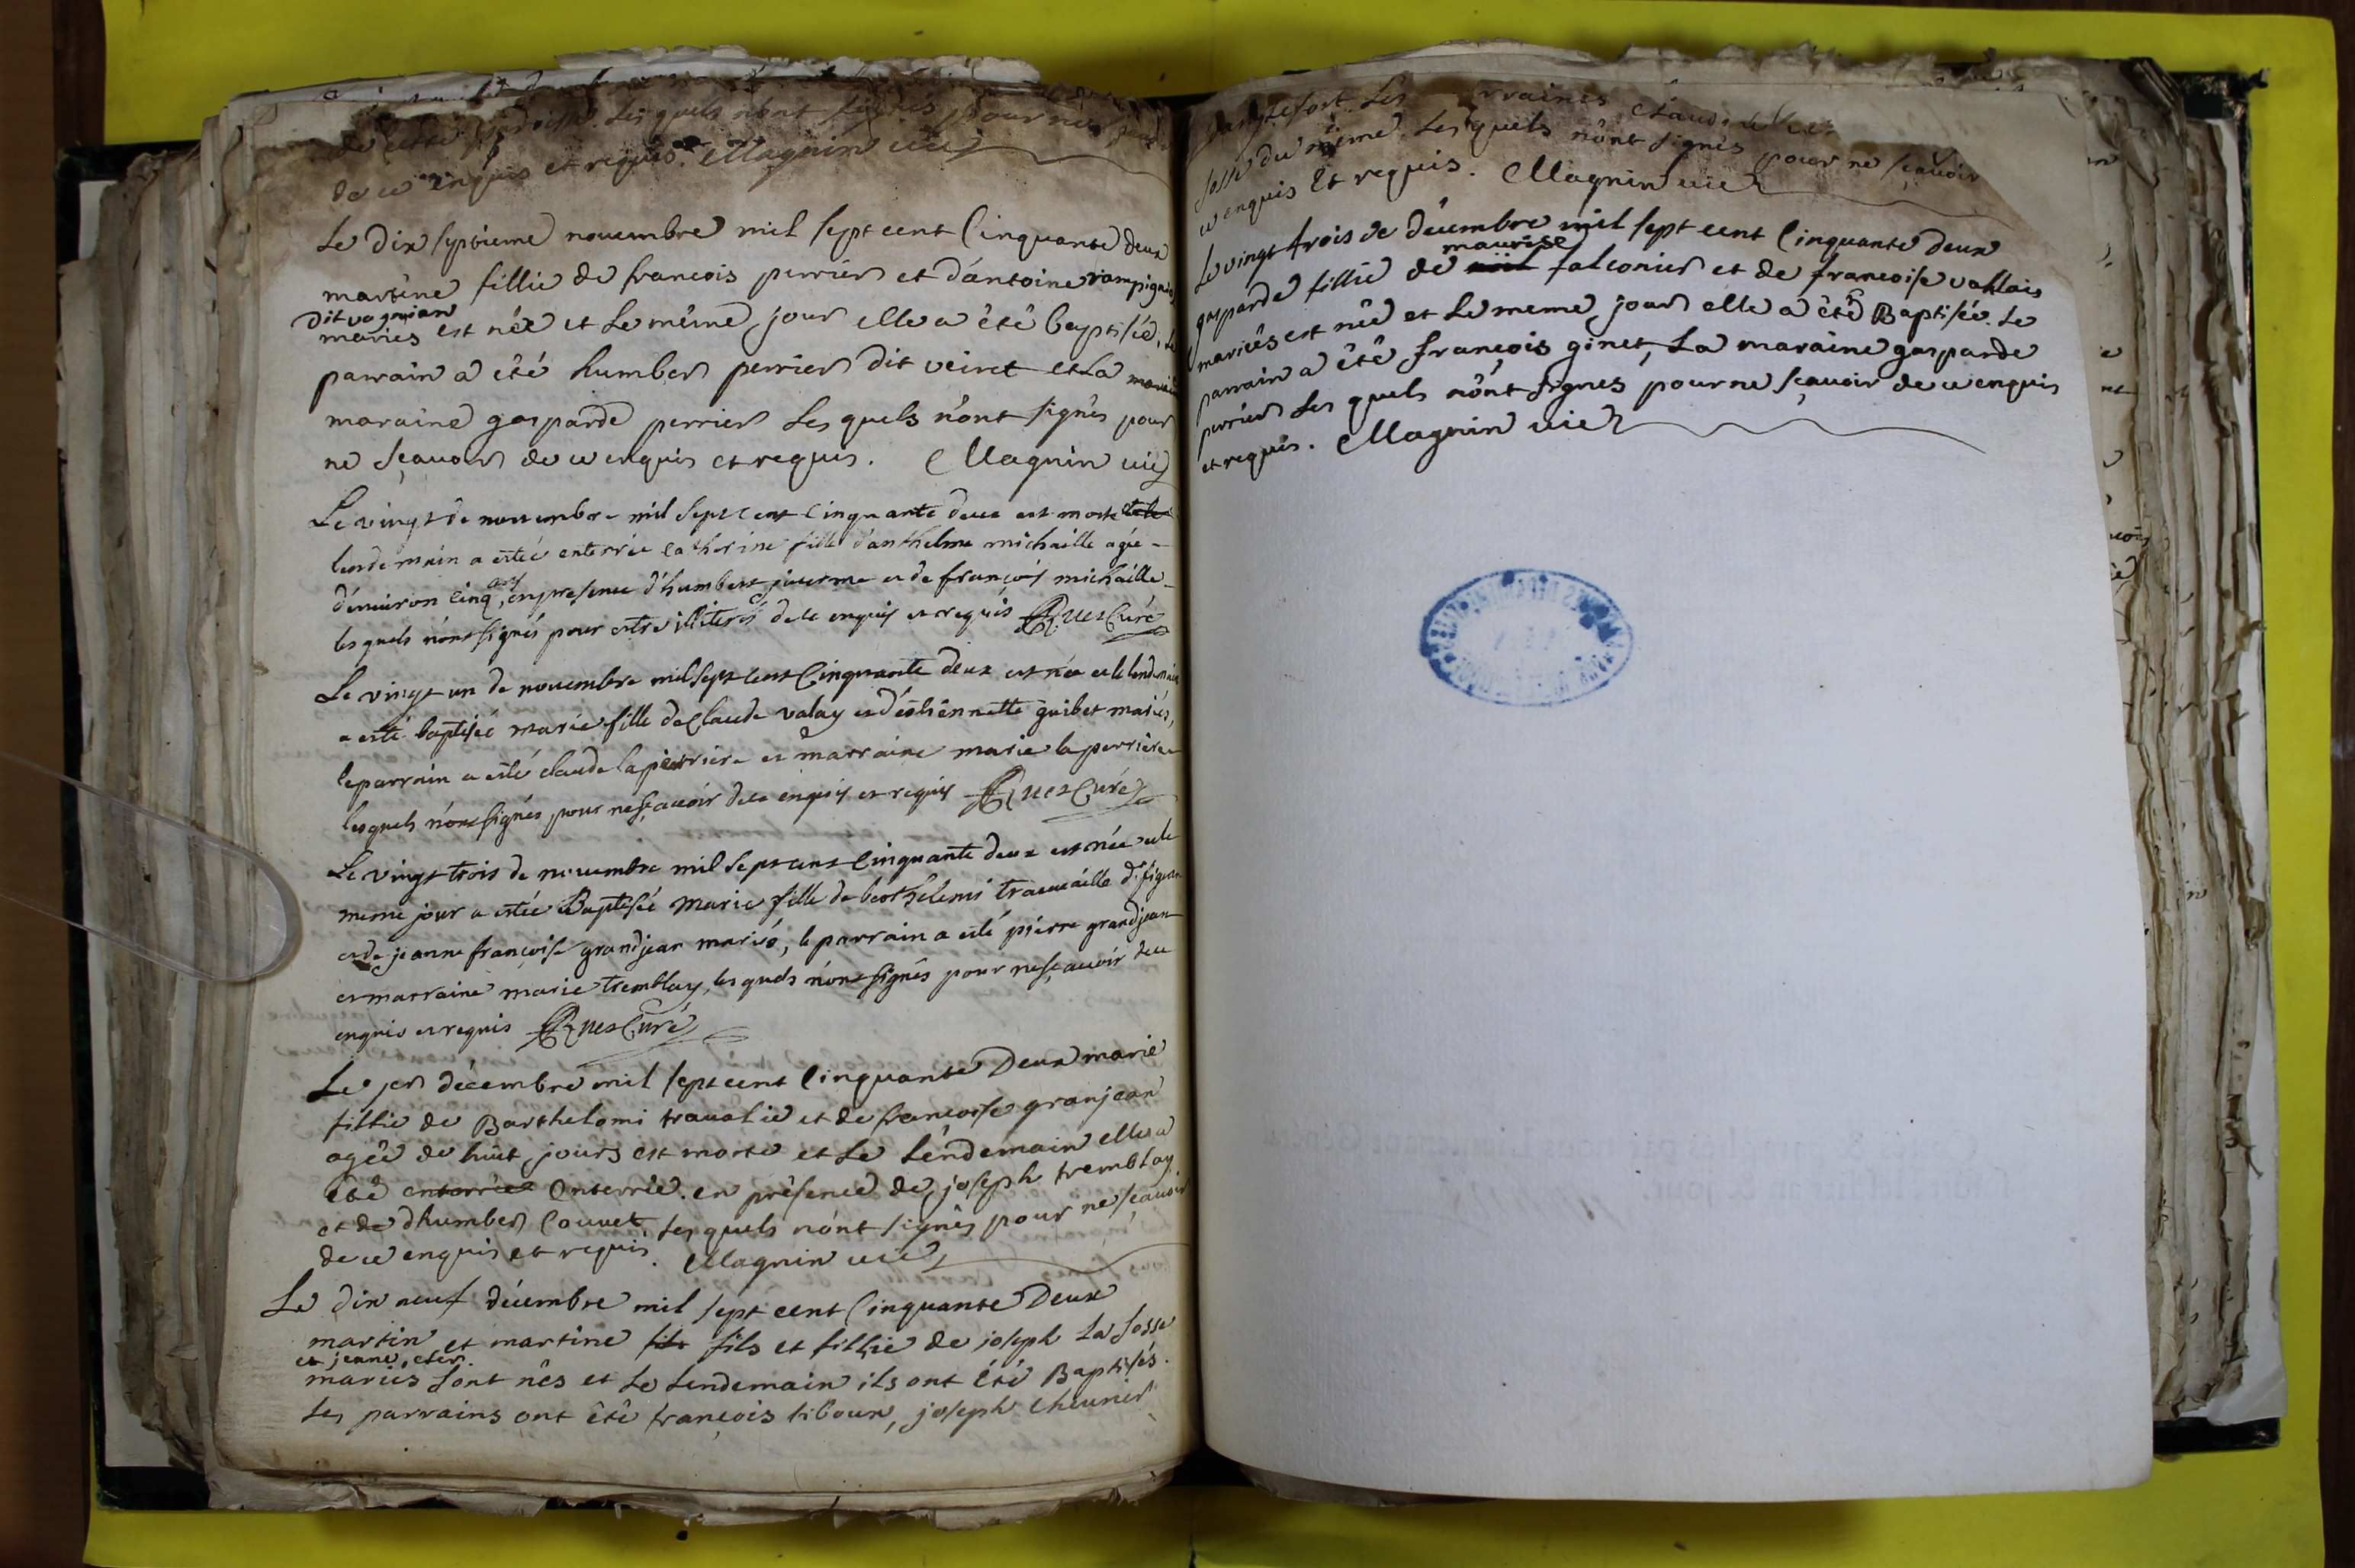 de cette paroisse. Les quels n'ont signés pour ne
de ce enquis et requis. Magnin vic
Le dix septieme novembre mil sept cent Cinquante deux
martine fillie de francois perrier et d'antoine rampignion
dit vagnian
mariés est née et Le même jour elle a été baptisée, Le
parrain a été humber perrier dit veiret et La
maraine gasparde perrier Les quels n'ont signés pour
ne sçavoir de ce enquis et requis. Magnin vic
Le vingt de novembre mil sept cent Cinquante deux est morte et le
lendemain a estée enterrée catherine fille d'anthelme michaille agée
d'environ cinq ans, en presence d'humbert juverme et de françois michaille
lesquels n'ont signés pour estre illiterés de ce enquis et requis Curé
Le vingt un de novembre mil sept cent Cinquante deux est née et le lendemain
a esté baptisée marie fille de Claude valay et d'éstiennette guibet mariés,
le parrain a esté claude laperriere et marraine marie la perriere
lesquels n'ont signés pour ne sçavoir de ce enquis et requis Curé
Le vingt trois de novembre mil sept cent Cinquante deux est née et le
meme jour a estée Baptisée Marie fille de berthelemi travaille dt
et de jeanne françoise grandjean mariés, le parrain a esté pierre grandjean
et marraine marie tremblay, lesquels n'ont signés pour ne sçavoir de ce
enquis et requis Curé
Le jer décembre mil sept cent Cinquante Deux marie
fillie de Barthelomi travalie et de francoise granjean
agée de huit jours est morte et Le Lendemain elle a
été enterrée Enterrée. en présence de joseph tremblay
et de d'humber Couvet, Les quels n'ont signés pour ne sçavoir
de ce enquis et requis. Magnin vic
Le dix neuf décembre mil sept cent Cinquante Deux
martin et martine fils fils et fillie de joseph La fosse
et jeanne
mariés sont nés et Le Lendemain ils ont été Baptisés.
Les parrains ont été françois liboux, joseph Chevrier
Les
fosse du même. Les quels n'ont signés pour ne sçavoir
ce enquis Et requis. Magnin vic
Le vingt trois de décembre mil sept cent Cinquante deux
maurise
gasparde fillie de falconier et de francoise vallais
mariés est née et Le meme jour elle a été Baptisée. Le
parrain a été françois ginet, La maraine gasparde
perrier Les quels n'ont signés pour ne sçavoir de ce enquis
et requis. Magnin vic